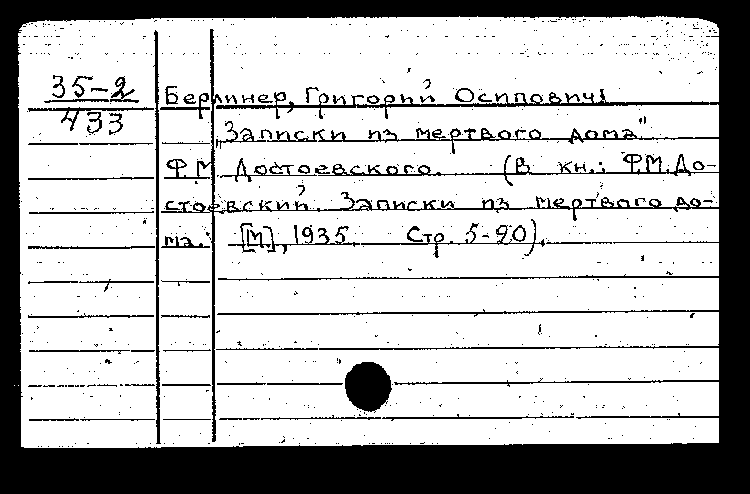 35-2
433
Берлинер, Григорий Осипович.
„Записки из мертвого дома"
Ф.М. Достоевского. (В кн.: Ф.М. До-
стоевский. Записки из мертвого до-
ма. [М.], 1935. Стр. 5-20).